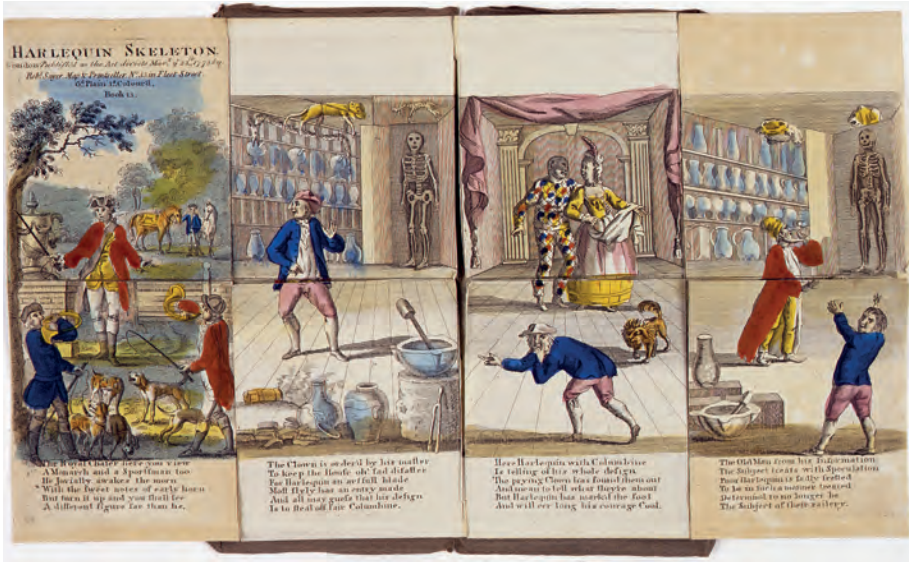 HARLEQUIN SKELETON.
London Publish'd as the Act directs
Rob.t Sayer Map & Printseller No. 53 in Fleet Street.
6d Plain 1s Colour'd.
Book 12.
The Royal Chaser here you view
A Monarch and a Sportsman too
He Jovially awakes the morn
With the sweet notes of early horn
But turn it up and you shall see
A different figure far than he.
The Clown is order'd by his master
To keep the House out sad disaster
For Harlequin an artfull blade
Most slyly has an entry made
And all may guess that his design
Is to steal off fair Columbine.
Here Harlequin with Columbine
Is telling of his whole design
The prying Clown has found them out
And mean to tell what they're about
But Harlequin has mark'd the fool
And will eer long his courage Cool.
The Old Man from his Information
The Subject treats with Speculation
Poor Harlequin is sadly
To be in such a manner treated
Determin'd to no longer be
The Subject of their railery.